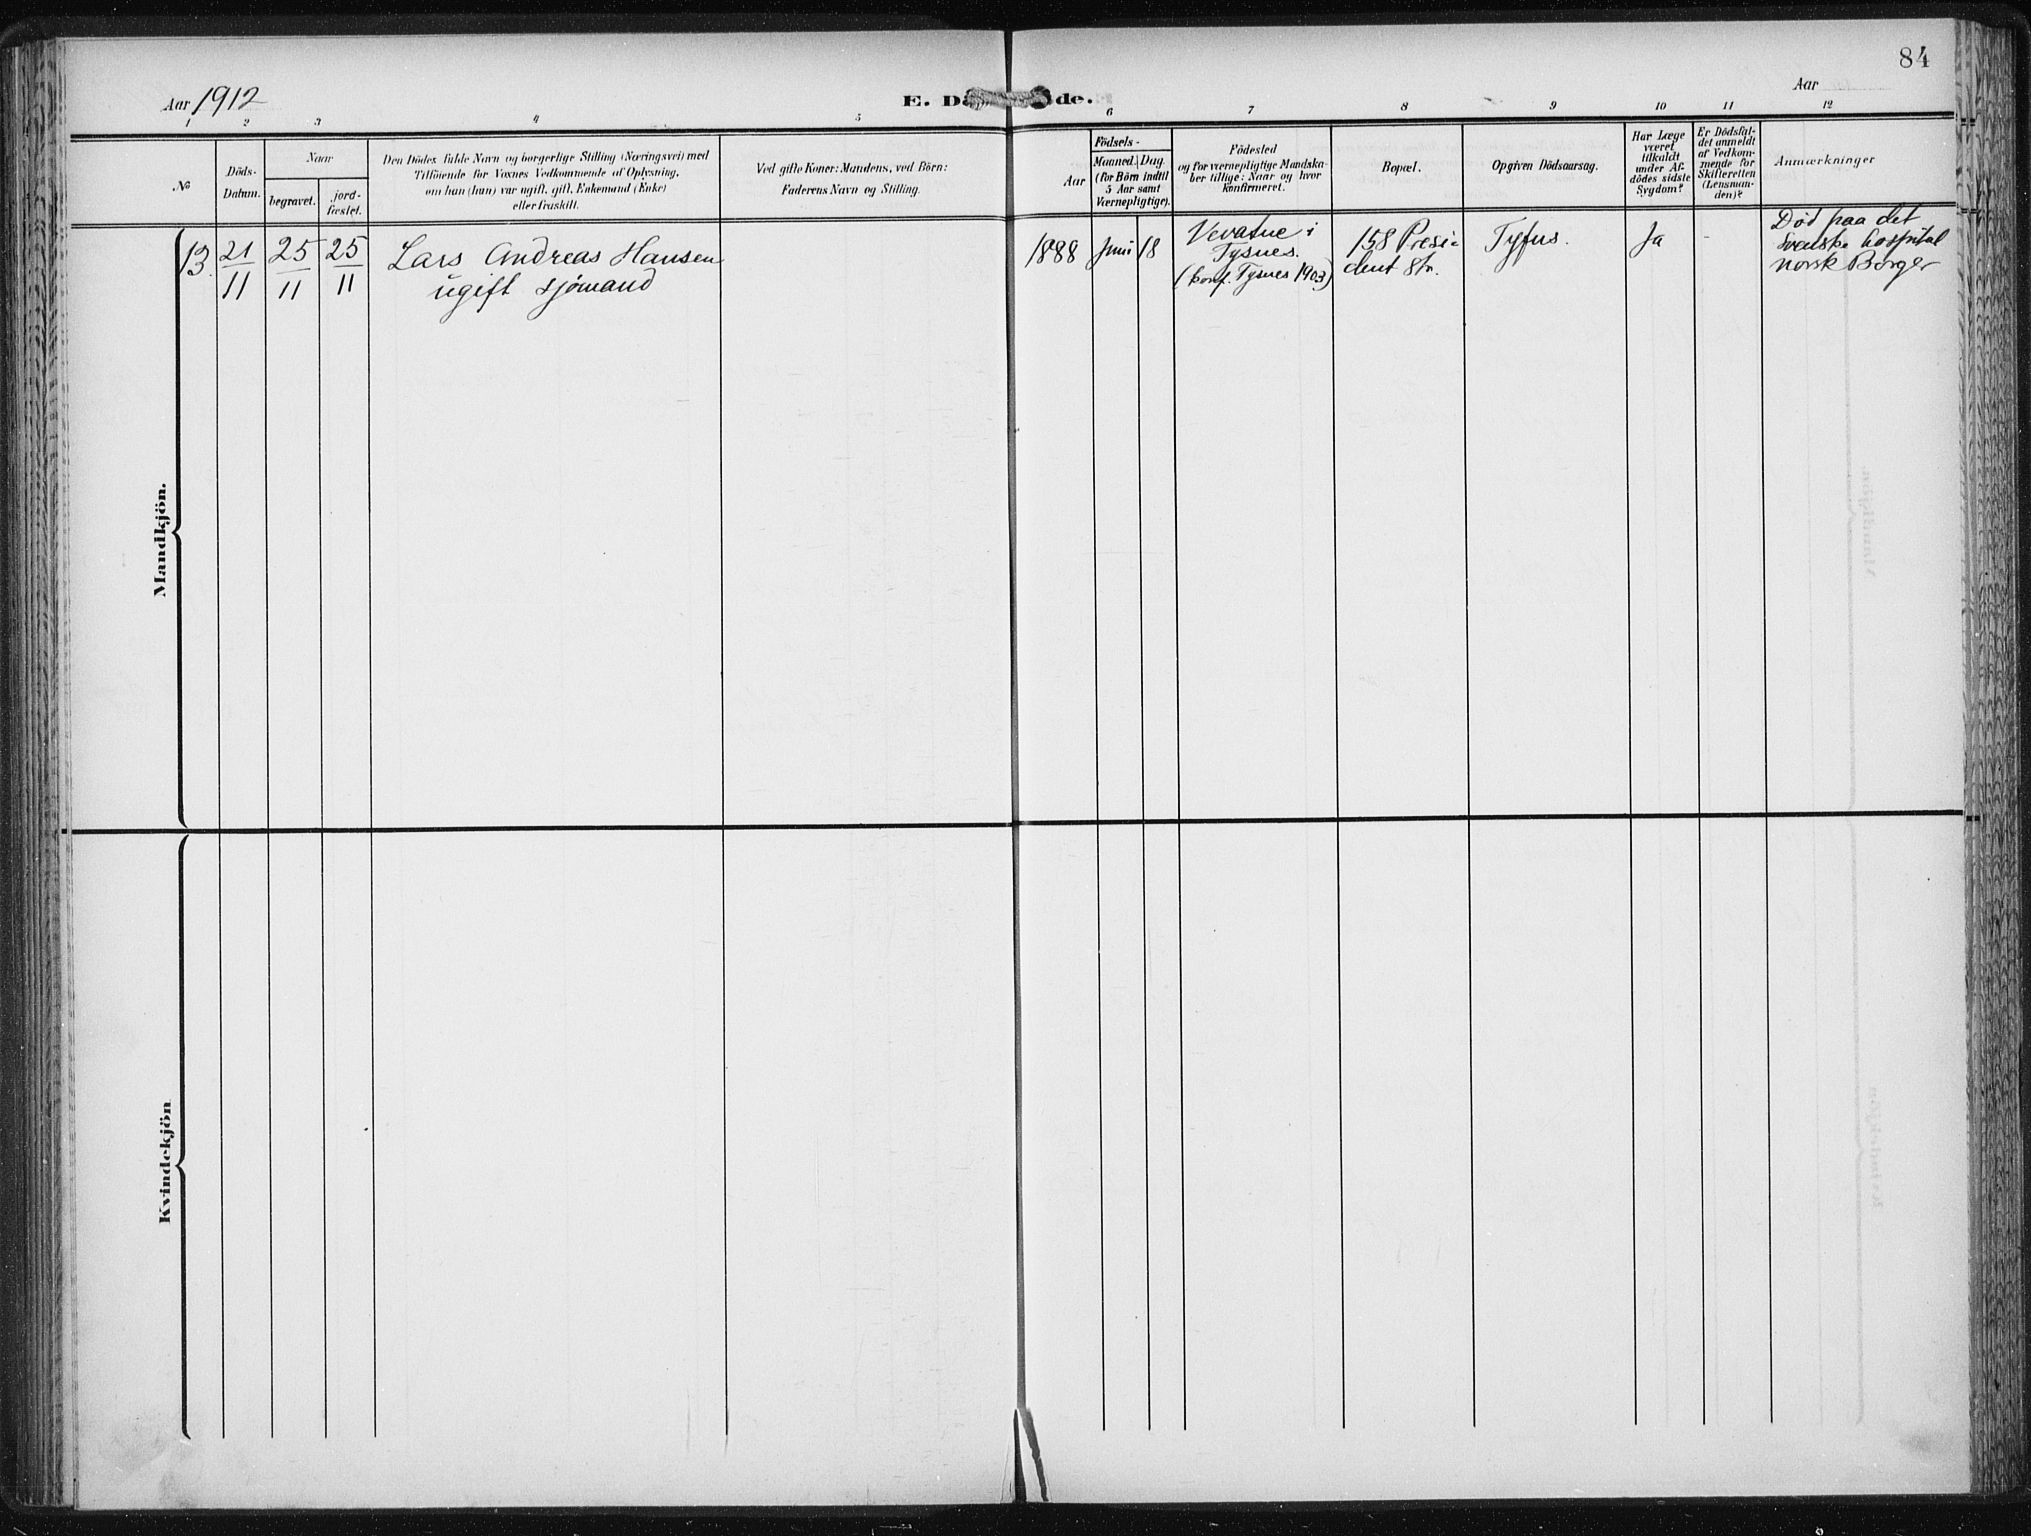 84
Aar 1912
E. Dö de.
Aar
1 2 3 4 5 6 7 8 9 10 11 12
No
Döds-
Datum.
Naar
begravet.
jord-
fæstet.
Den Dödes fulde Navn og borgerlige Stilling (Næringsvei) med
Tilföiende for Voxnes Vedkommende af Oplysning,
om han (hun) var ugift, gift, Enkemand (Enke)
eller fraskilt.
Ved gifte Koner: Mandens, ved Börn:
Faderens Navn og Stilling.
Födsels-
Aar
Maaned. Dag.
(for Börn indtil
5 Aar samt
Værnepligtige).
Födested
og for værnepligtige Mandska-
ber tillige: Naar og hvor
konfirmeret.
Bopæl.
Opgiven Dödsaarsag.
Har Læge
været
tilkaldt
under Af-
dödes sidste
Sygdom?
Er Dödsfal-
det anmeldt
af Vedkom-
mende for
Skifteretten
(Lensman-
den)?
Anmærkninger
13.
21
11
25
11
25
11
Lars Andreas Hansen
ugift sjømand
1888 Juni 18
Vevatne i
Tysnes.
(konf. Tysnes 1903)
158 Presi-
dent Str.
Tyfus.
Ja
-
Död paa det
svenske hospital
norsk Borger
Mandkjön.
Kvindekjön